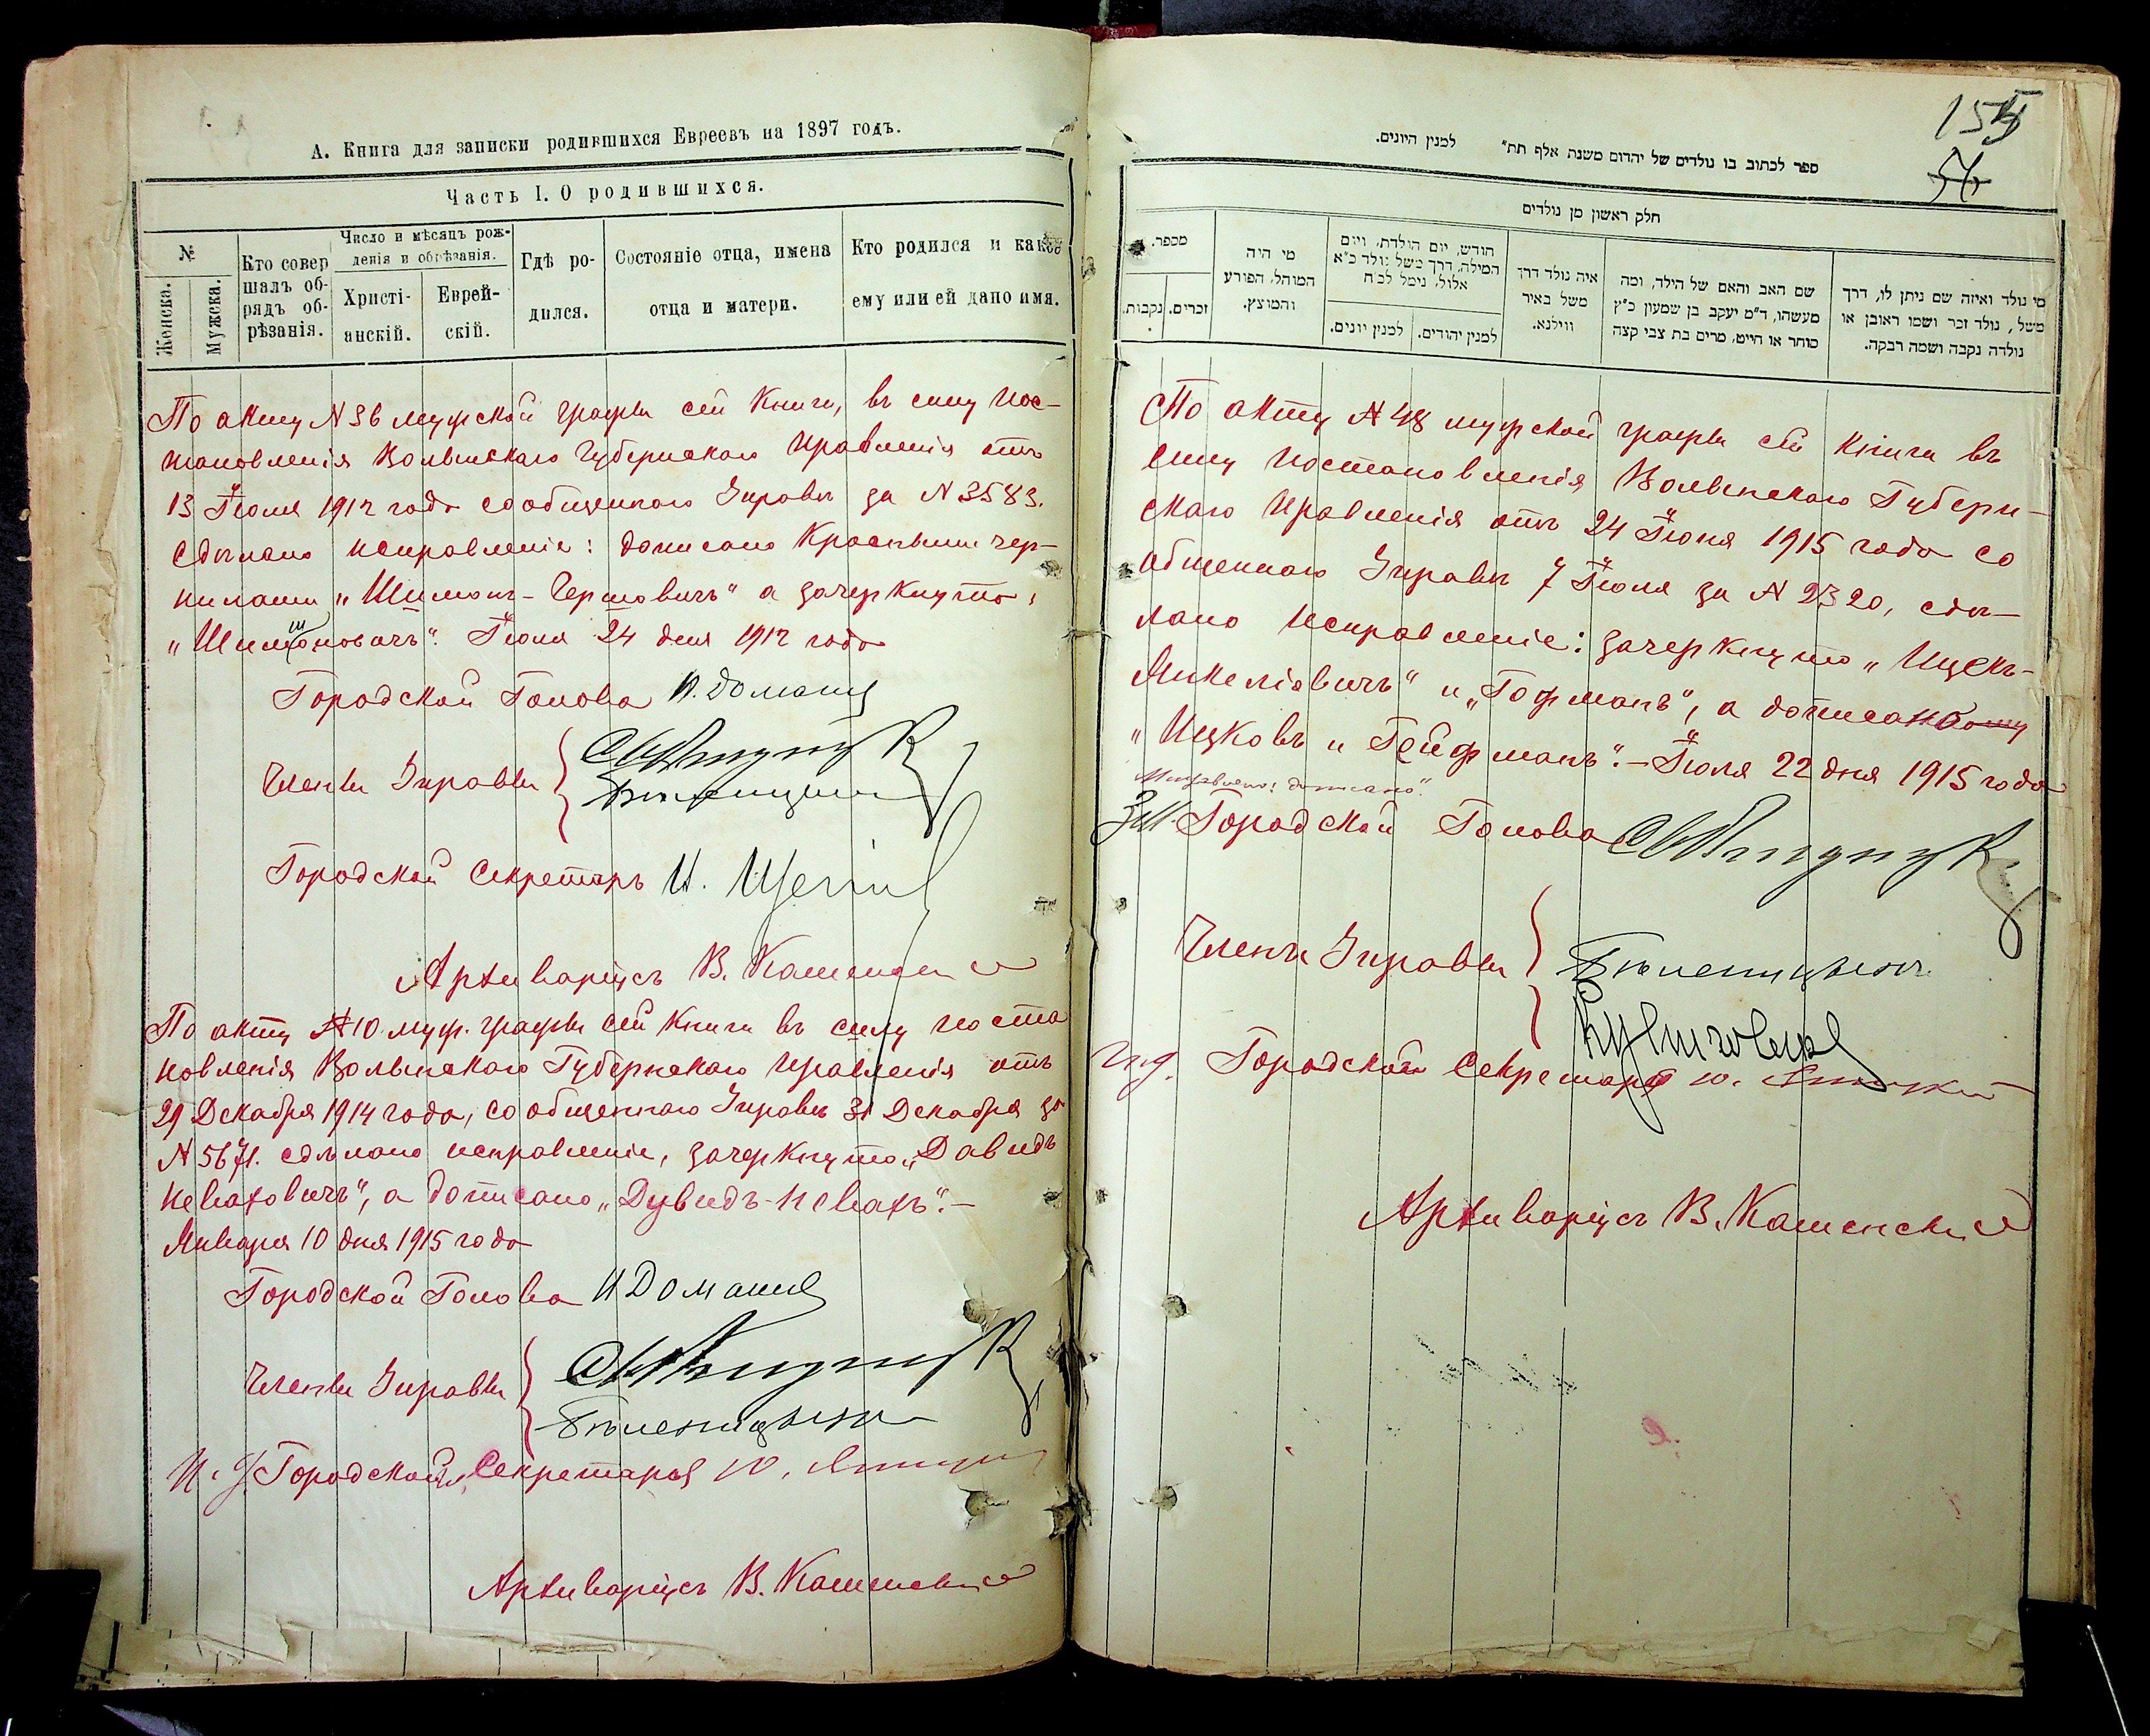 А. Книга для записки родившихся Евреевъ на 1897 годъ.
Часть I. О родившихся.
№
Женска.
Мужска.
Кто совер
шалъ об-
рядъ об-
рѣзанія.
Число и мѣсяцъ рож-
денія и обрѣзанія.
Христі-
анскій.
Еврей-
скій.
Гдѣ ро-
дился.
Состояніе отца, имена
отца и матери.
Кто родился и какое
ему или ей дано имя.
По акту № 36 мужской графы сей Книги, въ силу Пос-
тановленія Волынскаго Губернскаго Правленія отъ
13 Іюня 1912 года сообщеннаго Управѣ за № 3583.
Сдѣлано исправленіе: дописано Красными чер-
нилами „Шимонъ-Гершовичъ" а зачеркнуто,
„Шимоновичъ". Іюня 24 дня 1912 года
Городской Голова И. Доманц
Члены Управы
Городской Секретарь И.
Архиваріусъ В. Каменскій
По акту № 10 муж. графы сей Книги въ силу Поста
новленія Волынскаго Губернскаго Правленія отъ
29 Декабря 1914 года, сообщеннаго Управѣ 31 Декабря за
№ 5671. сдѣлано исправленіе, зачеркнуто „Давидъ
Невахович", а дописано „Дувидъ-Невахъ".-
Января 10 дня 1915 года
Городской Голова И Доманц
Члены Управы
И. д. Городской Секретаря Ю.
Архиваріусъ В. Каменскій
155
56
ספר לכתוב בו נולדים של יהדום משנת אלף תת" למנין היונים.
חלק ראשון מן נולדים
מספר.
זכרים.
נקבות.
מי היה
המוהל, הפורע
והמוצץ.
חודש, יום הולדת, ויום
המילה, דרך משל נולד כ"א
אלול, נימל לכ"ח
למנין יהודים.
למנין יונים.
איה נולד דרך
משל באיר
ווילנא.
שם האב והאם של הילד, ומה
מעשהו, ד"מ יעקב בן שמעון כ"ץ
סוחר או חייט, מרים בת צבי קצה
מי נולד ואיזה שם ניתן לו, דרך
משל, נולד זכר ושמו ראובן או
נולדה נקבה ושמה רבקה.
По акту № 48 мужской графы сей книги въ
силу Постановленія Волынскаго Губерн-
скаго Правленія отъ 24 Іюня 1915 года со
общеннаго Управѣ 7 Іюля за № 2320, сдѣ-
лано исправленіе: зачеркнуто „Ицекъ-
Янкеліовичъ" и „Гофманъ", а дописано
„Ицковъ и Гейфманъ".- Іюля 22 дня 1915 года
Исправлено: дописано".
Зм. Городской Голова
Члены Управы
И д. Городской Секретаря Ю.
Архиваріусъ В. Каменскій